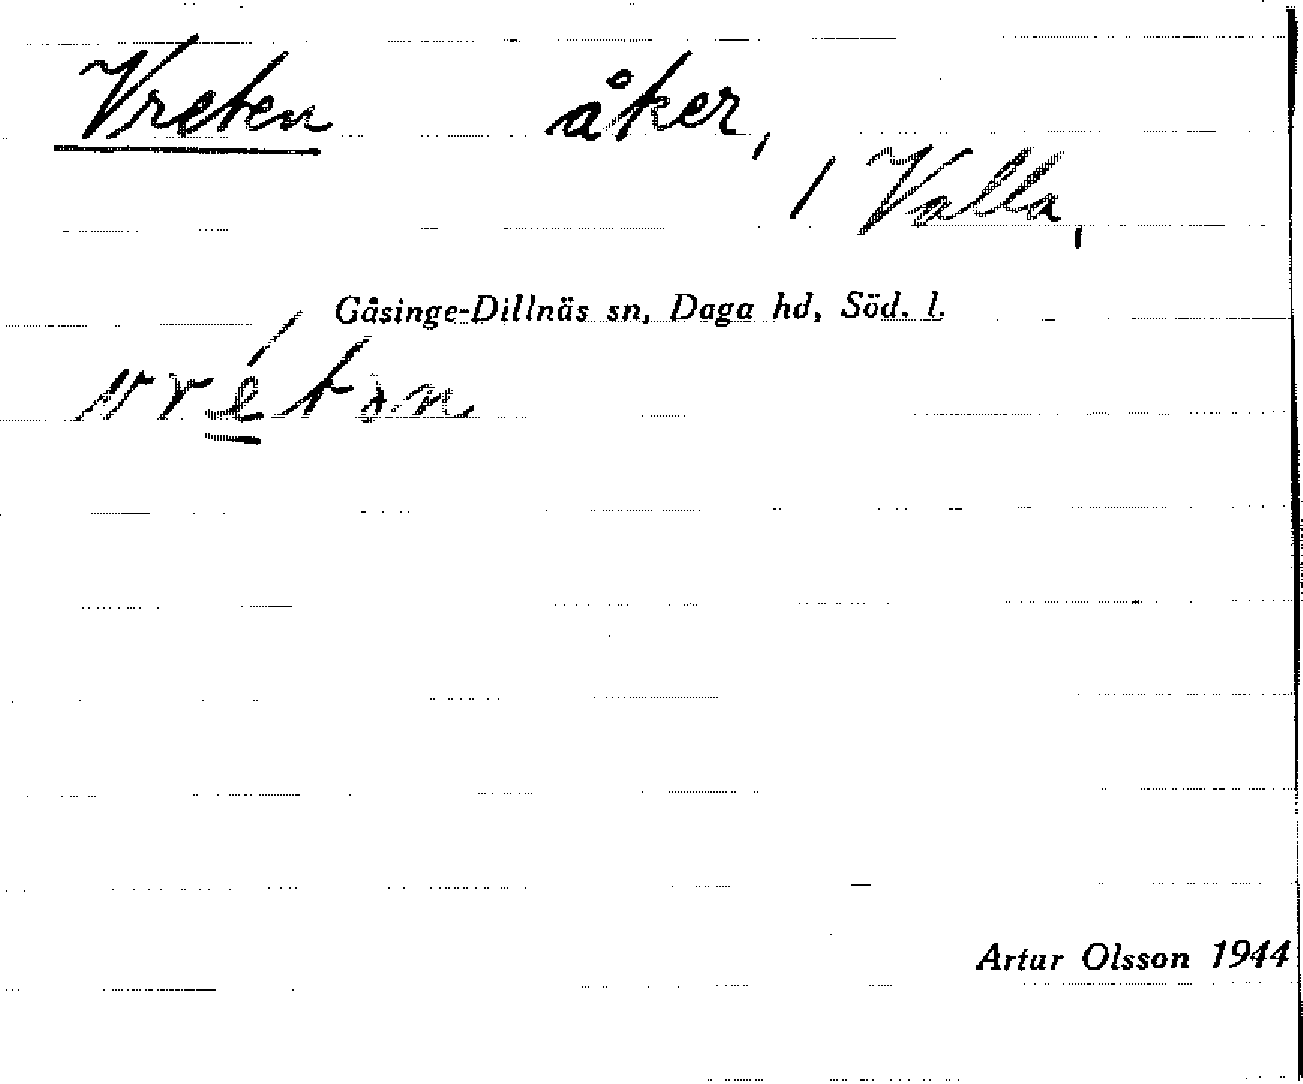 Vreten åker,
1 Valla,
Gåsinge-Dillnäs sn, Daga hd, Söd. l.
vré̱tən
Artur Olsson 1944